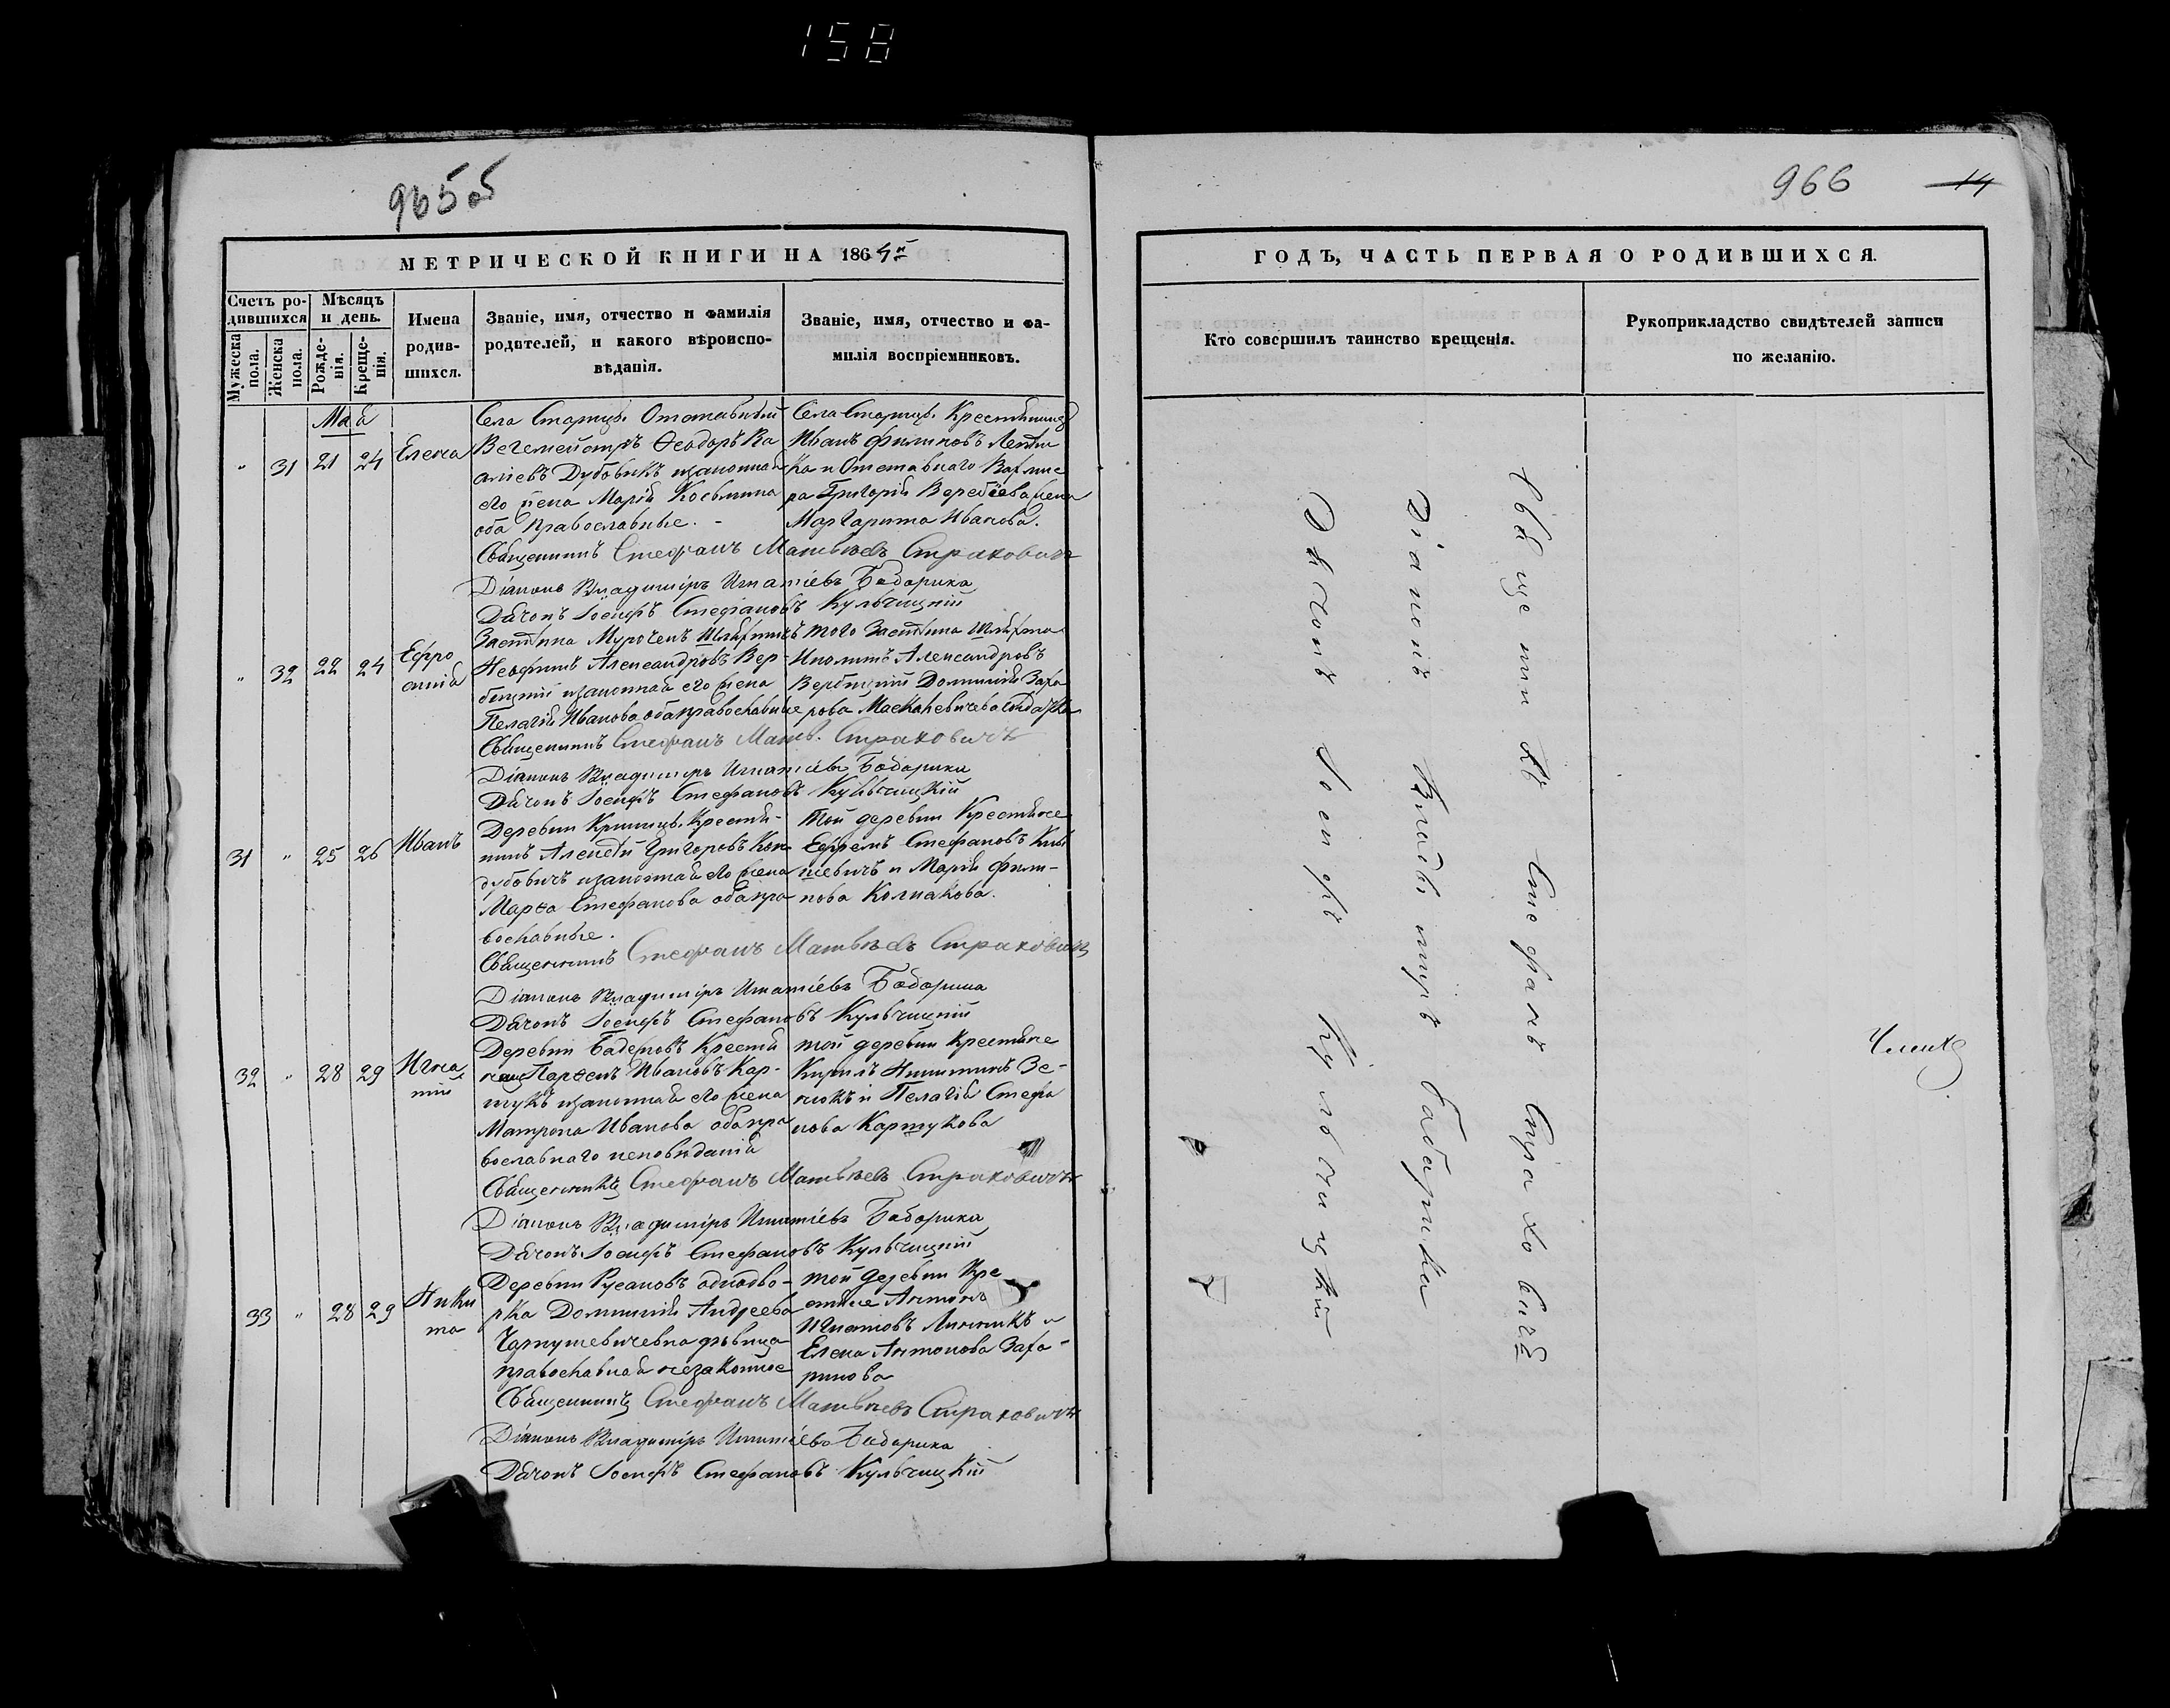 158
965 об
МЕТРИЧЕСКОЙ КНИГИ НА 1864й
Счетъ родившихся
Мужеска пола.
Женска пола.
Мѣсяцъ и день.
Рожденія.
Крещенія.
Имена родившихся.
Званіе, имя, отчество и фамилія
родителей, и какого вѣроиспо-
вѣданія.
Званіе, имя, отчество и фа-
милія воспріемниковъ.
Май
" 31 21 24 Елена
Села Старицы Отставный
Вахмейстръ Ѳеодоръ
Дубовикъ изаконная
его жена Марія Косьмина
оба православные. -
Села Старицы Крестьянинъ
Иванъ Филиповъ
ка и Отставнаго Вахмис
ра Григорія Веребіева жена
Маргарита Иванова.
Священникъ Стефанъ Матвѣевъ Страховичъ
Діаконъ Владиміръ Игнатіевъ Бабарика
Дьячокъ Іосифъ Стефановъ Кульчицкій
" 32 22 24 Ефро
синія
Застѣнка Мурочекъ Шляхтичъ
Неофитъ Александровъ Вер-
бицкій изаконная его жена
Пелагія Иванова оба православные
того Застѣнка Шляхта
Иполитъ Александровъ
Вербицкій Доминикія Заха
рова
Священникъ Стефанъ Матв. Страховичъ
Діаконъ Владиміръ Игнатіевъ Бабарика
Дьячокъ Іосифъ Стефановъ Кульчицкій
31 " 25 26 Иванъ
Деревни Криницы Крестья-
нинъ Алексѣй Григоровъ Кон
дубовичъ изаконная его жена
Марѳа Стефанова оба пра
вославные.
той деревни Крестьяне
Ефремъ Стефановъ
и Марія Фили-
пова Колпакова.
Священникъ Стефанъ Матвѣевъ Страховичъ
Діаконъ Владиміръ Игнатіевъ Бабарика
Дьячокъ Іосифъ Стефановъ Кульчицкій
32 " 28 29 Игна
тій
Деревни Крестья
нинъ Парѳенъ Ивановъ Кар-
тукъ изаконная его жена
Матрона Иванова оба пра
вославнаго исповѣданія
той деревни Крестьяне
Кирилъ Никитинъ Зе-
нюкъ и Пелагія Стефа
нова Картукова
Священникъ Стефанъ Матвѣевъ Страховичъ
Діаконъ Владиміръ Игнатіевъ Бабарика
Дьячокъ Іосифъ Стефановъ Кульчицкій
33 " 28 29 Ники
та
Деревни Русаковъ однодво-
рка Доминикія Андреева
дѣвица
православная незаконно
той деревни Кре
стьяне Антонъ
Игнатовъ Линникъ и
Елена Антонова Заха-
ринова
Священникъ Стефанъ Матвѣевъ Страховичъ
Діаконъ Владиміръ Игнатіевъ Бабарика
Дьячокъ Іосифъ Стефановъ Кульчицкій
966 14
ГОДЪ, ЧАСТЬ ПЕРВАЯ О РОДИВШИХСЯ.
Кто совершилъ таинство крещенія.
Рукоприкладство свидѣтелей записи
по желанію.
Священникъ Стефанъ Страховичъ
Діаконъ Владиміръ Бабарика
Дьячокъ Іосифъ Кульчицкій